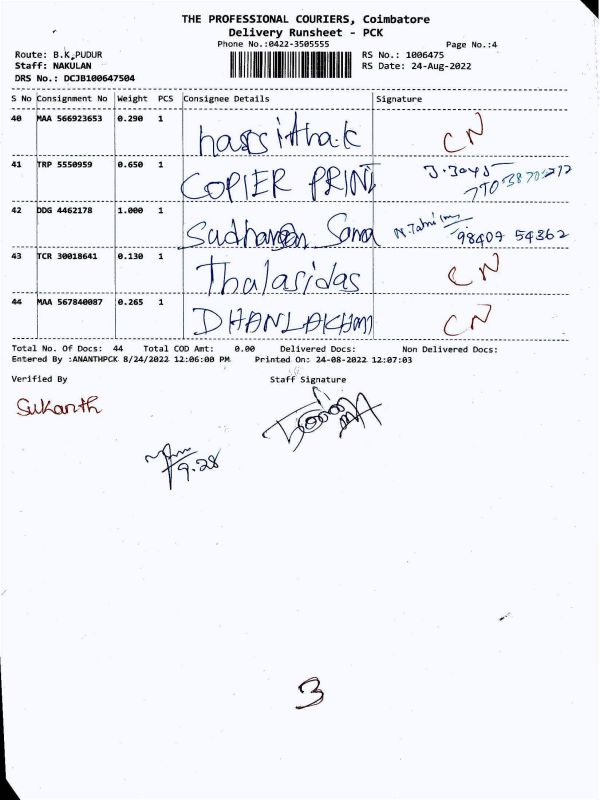 THE PROFESSIONAL COURIERS, Coimbatore
Delivery Runsheet - PCK
Phone No.:0422-3505555 Page No.:4
Route: B.K.PUDUR RS No.: 1006475
Staff: NAKULAN RS Date: 24-Aug-2022
DRS No.: DCJB100647504
S No Consignment No Weight PCS Consignee Details Signature
40 MAA 566923653 0.290 1 CN
41 TRP 5550959 0.650 1 COPIER PRINT
42 DDG 4462178 1.000 1 98409 54362
43 TCR 30018641 0.130 1 Thalasidas CN
44 MAA 567840087 0.265 1 CN
Total No. Of Docs: 44 Total COD Amt: 0.00 Delivered Docs: Non Delivered Docs:
Entered By :ANANTHPCK 8/24/2022 12:06:00 PM Printed On: 24-08-2022 12:07:03
Verified By Staff Signature
Sukanth
9.28
3